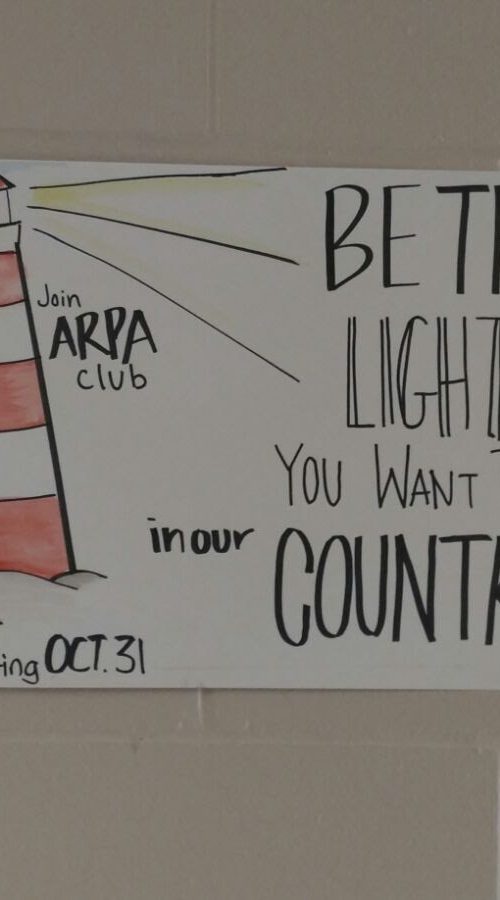 Join
ARPA
club
BE
LIGHT
YOU WANT
in our
OCT. 31